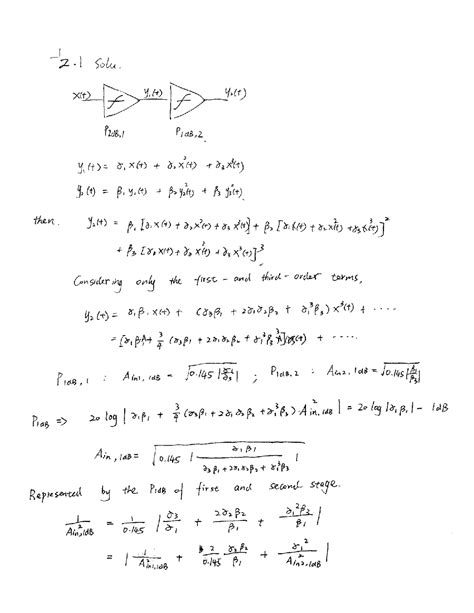 2.1 Solu.
x(t) y₁(t) y₂(t)
P1dB,1 P1dB,2
y₁(t) = α₁ x(t) + α₂ x²(t) + α₃ x³(t)
y₂(t) = β₁ y₁(t) + β₂ y₁²(t) + β₃ y₁³(t)
then. y₂(t) = β₁ [α₁ x(t) + α₂ x²(t) + α₃ x³(t)] + β₂ [α₁ x(t) + α₂ x²(t) + α₃ x³(t)]²
+ β₃ [α₁ x(t) + α₂ x²(t) + α₃ x³(t)]³
Considering only the first - and third - order terms,
y₂(t) = α₁β₁ x(t) + (α₃β₁ + 2α₁α₂β₂ + α₁³β₃) x³(t) + ····
= [α₁β₁A + 3/4 (α₃β₁ + 2α₁α₂β₂ + α₁³β₃) A³] (t) + ····
P1dB,1 : Ain1,1dB = √(0.145 |α₁/α₃|) ; P1dB,2 : Ain2,1dB = √(0.145 |β₁/β₃|)
P1dB ⇒ 20 log | α₁β₁ + 3/4 (α₃β₁ + 2α₁α₂β₂ + α₁³β₃) · A²in,1dB | = 20 log |α₁β₁| - 1dB
Ain,1dB = √(0.145 | α₁β₁ / (α₃β₁ + 2α₁α₂β₂ + α₁³β₃) |)
Represented by the P1dB of first and second stage.
1/A²in,1dB = 1/0.145 | α₃/α₁ + 2α₂β₂/β₁ + α₁²β₃/β₁ |
= | 1/A²in1,1dB + 2/0.145 α₂β₂/β₁ + α₁²/A²in2,1dB |